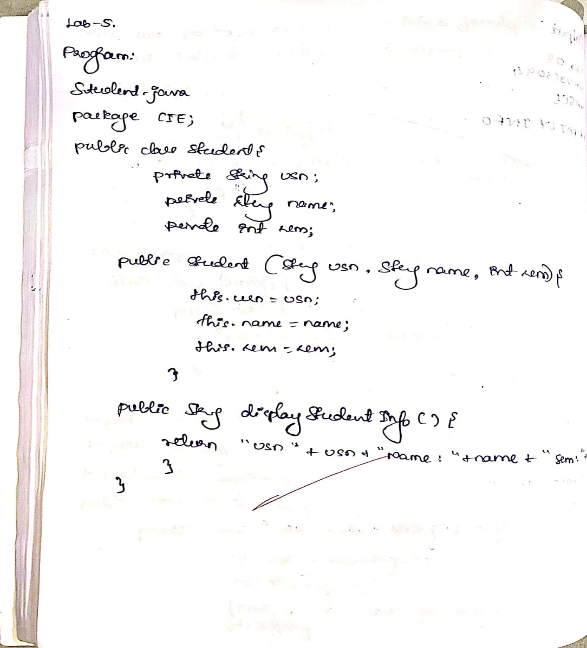 Lab-5.
Program:
Student.java
package CIE;
public class Student {
private String usn;
private String name;
private int sem;
public Student (String usn, String name, int sem) {
this.usn = usn;
this.name = name;
this.sem = sem;
}
public String displayStudentInfo () {
return "usn" + usn + "name: " + name + "sem:"+
}
}